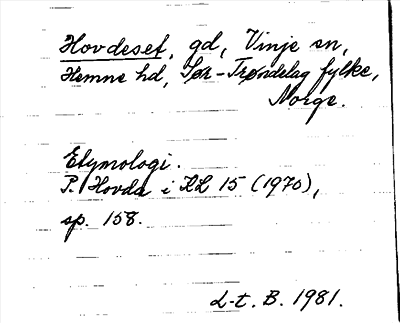 Hovdeset, gd, Vinje sn,
Hemne hd, Sør-Trøndelag fylke,
Norge.
Etymologi.
P. Hovda i KL 15 (1970),
sp. 158.
L-t. B. 1981.